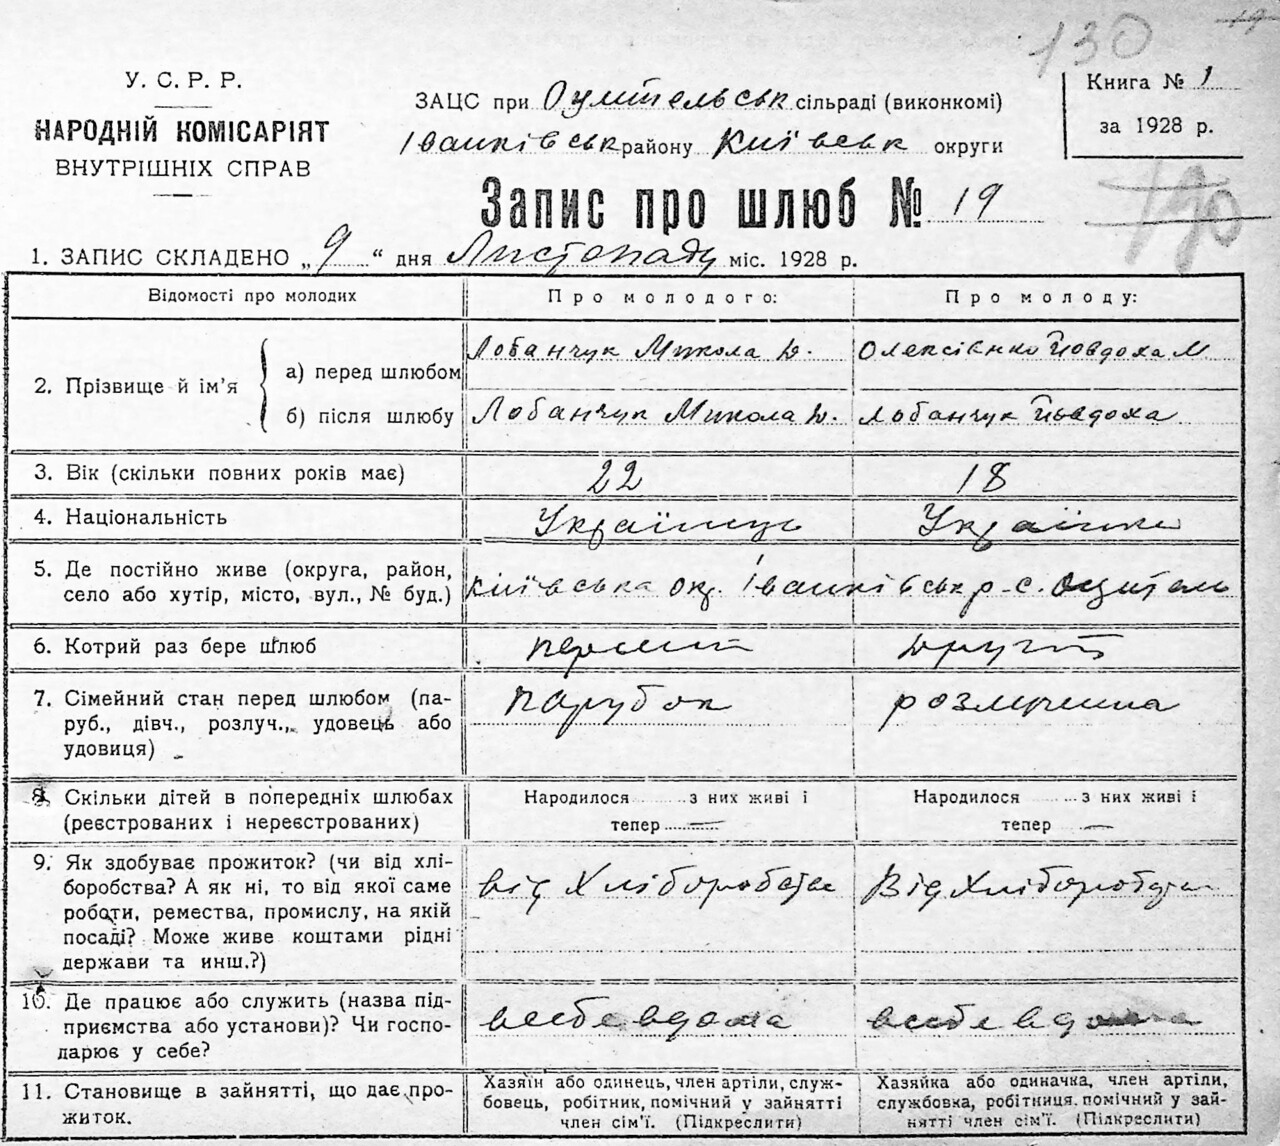 130
19
У. С. Р. Р.
НАРОДНІЙ КОМІСАРІЯТ
ВНУТРІШНІХ СПРАВ
ЗАЦС при Оцительськ сільраді (виконкомі)
Іванківськ району Київськ округи
Книга № 1
за 1928 р.
190
Запис про шлюб № 19
1. ЗАПИС СКЛАДЕНО „9“ дня Листопаду міс. 1928 р.
Відомості про молодих Про молодого: Про молоду:
2. Прізвище й ім’я
а) перед шлюбом Лобанчук Микола Д. Олексієнко Йовдоха М
б) після шлюбу Лобанчук Микола Д. Лобанчук Йовдоха
3. Вік (скільки повних років має) 22 18
4. Національність Українець Українка
5. Де постійно живе (округа, район,
село або хутір, місто, вул., № буд.) Київська окр. Іванківськ р. с. Оцитель
6. Котрий раз бере шлюб перший другий
7. Сімейний стан перед шлюбом (па-
руб., дівч., розлуч., удовець або
удовиця) парубок розлучена
8. Скільки дітей в попередніх шлюбах
(реєстрованих і нереєстрованих)
Народилося ...... з них живі і
тепер —
Народилося ...... з них живі і
тепер —
9. Як здобуває прожиток? (чи від хлі-
боробства? А як ні, то від якої саме
роботи, ремества, промислу, на якій
посаді? Може живе коштами рідні
держави та инш.?)
від Хліборобства Від Хліборобства
10. Де працює або служить (назва під-
приємства або установи)? Чи госпо-
дарює у себе?
всебе вдома всебе вдома
11. Становище в зайнятті, що дає про-
житок.
Хазяїн або одинець, член артіли, служ-
бовець, робітник, помічний у зайнятті
член сім’ї. (Підкреслити)
Хазяйка або одиначка, член артіли,
службовка, робітниця. помічний у зай-
нятті член сім’ї. (Підкреслити)